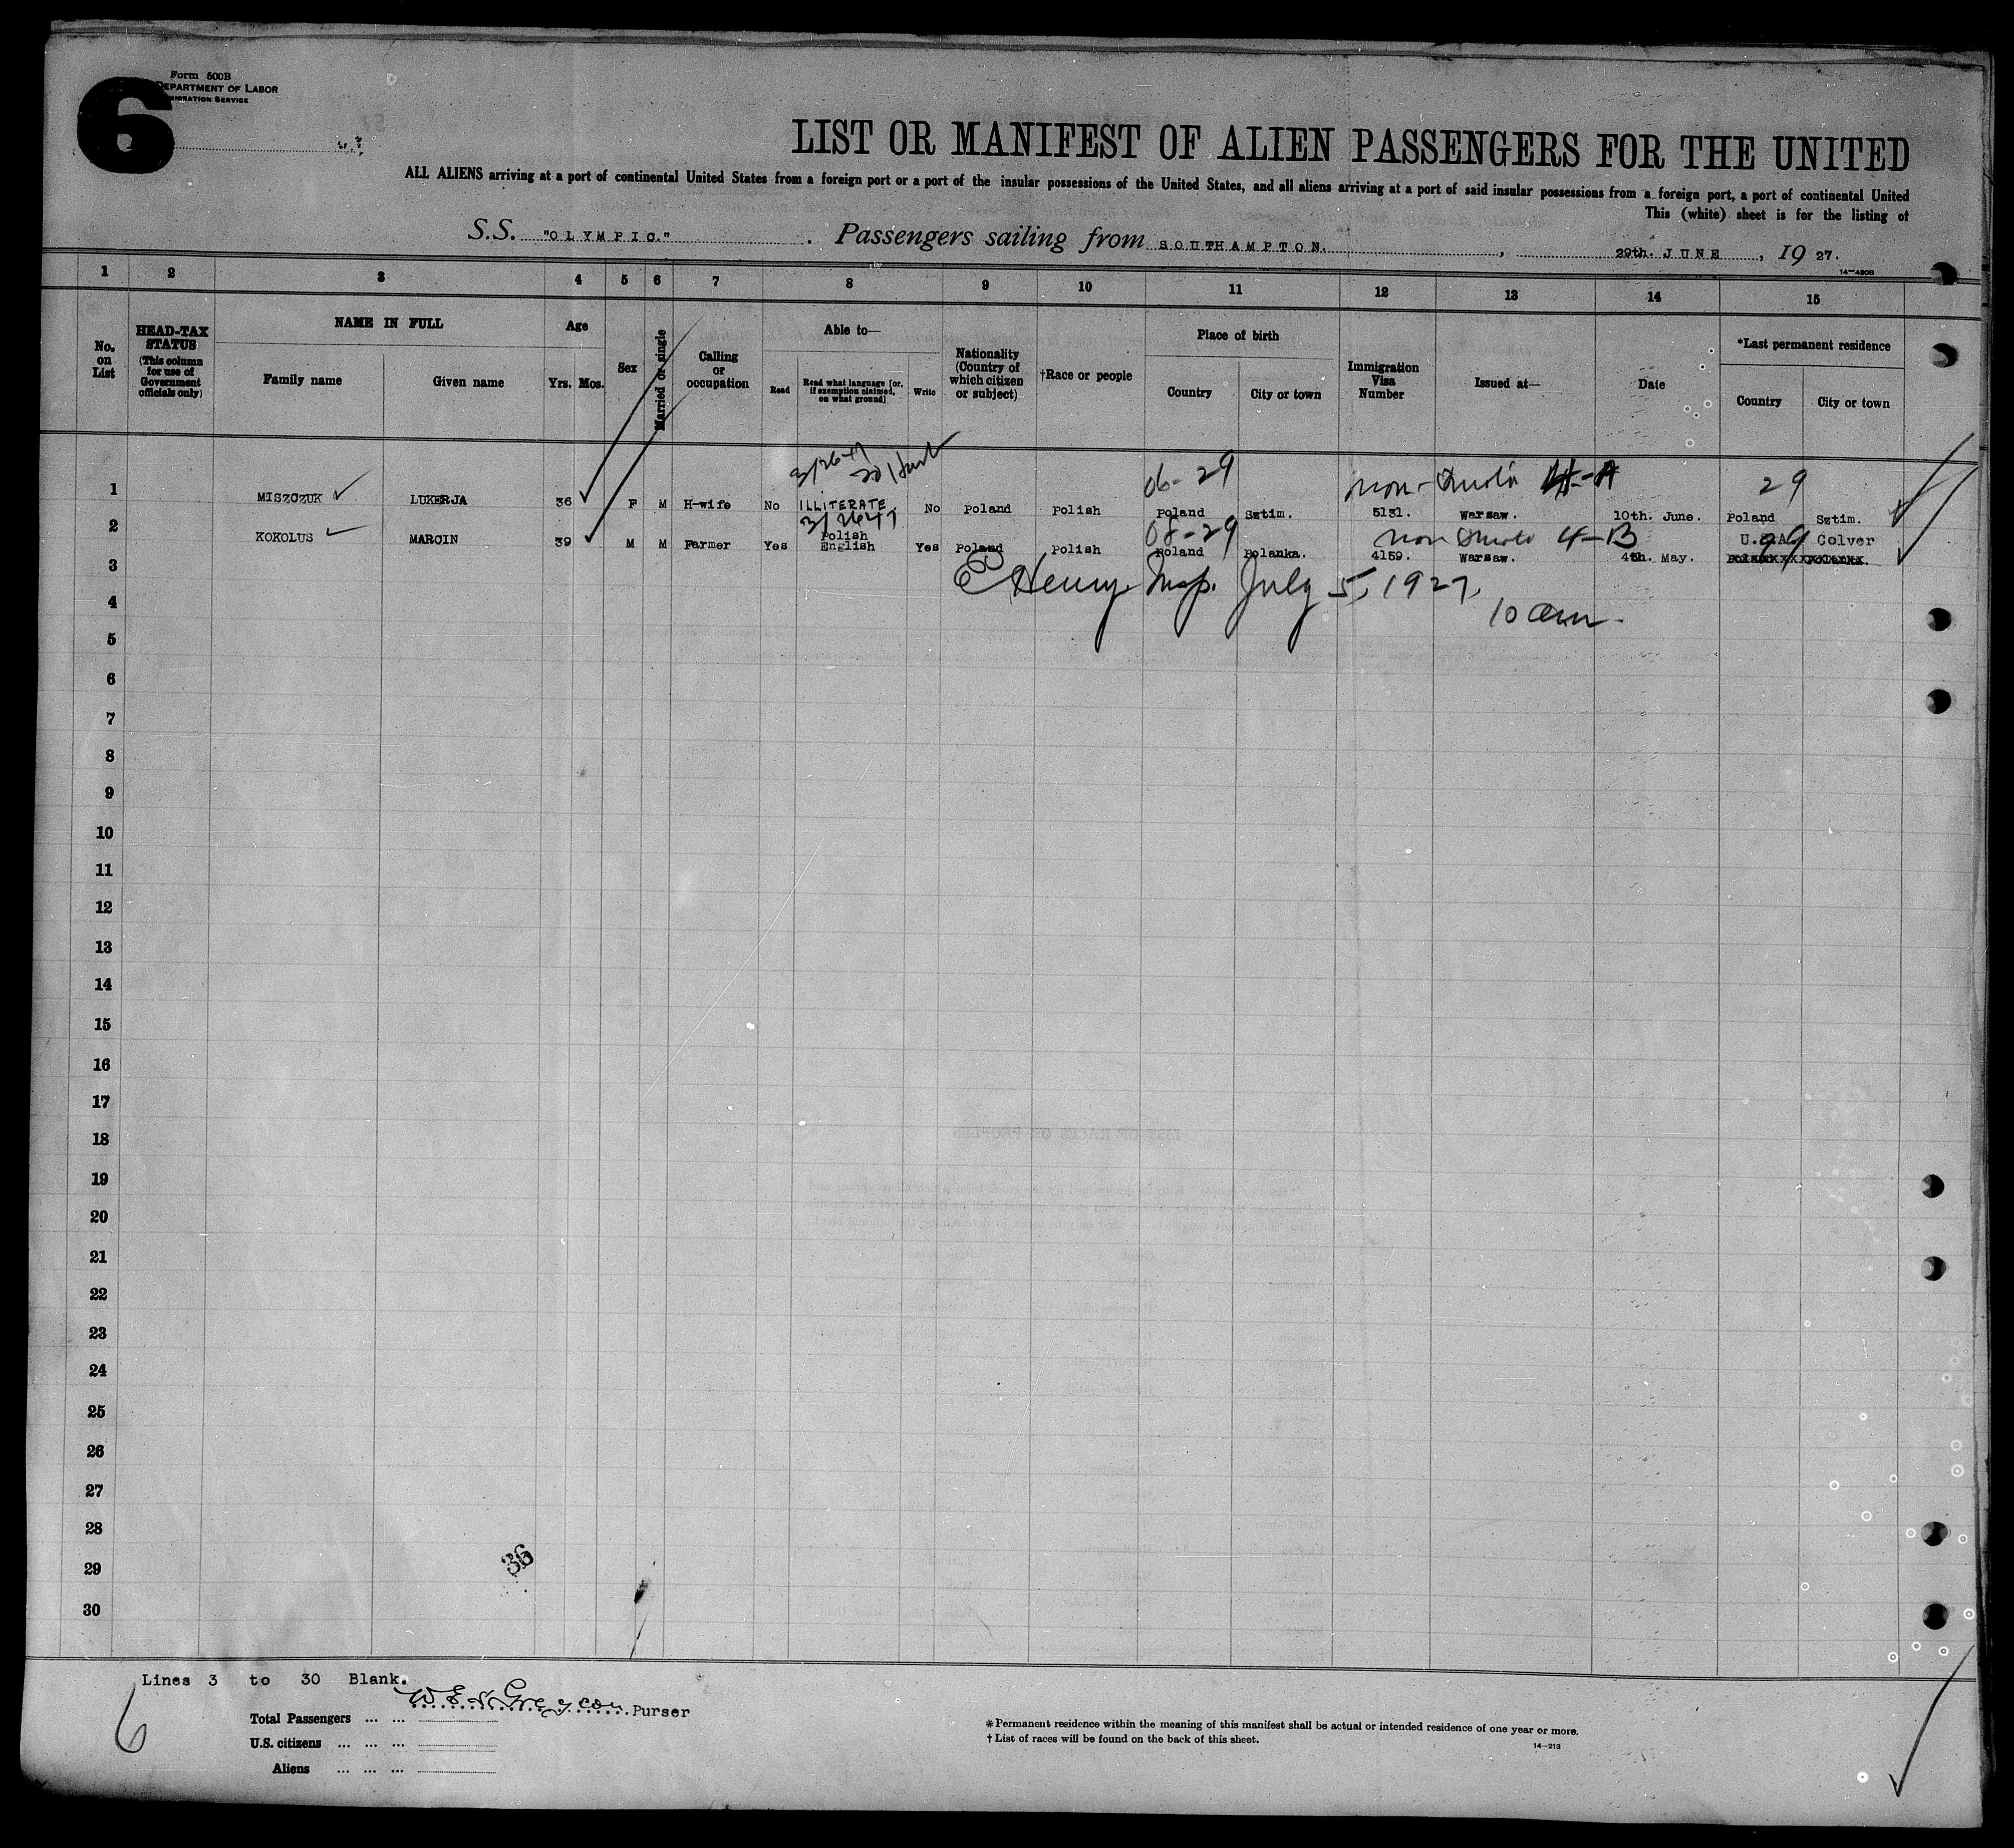 6
Form 500B
DEPARTMENT OF LABOR
IMMIGRATION SERVICE
LIST OR MANIFEST OF ALIEN PASSENGERS FOR THE UNITED
ALL ALIENS arriving at a port of continental United States from a foreign port or a port of the insular possessions of the United States, and all aliens arriving at a port of said insular possessions from a foreign port, a port of continental United
This (white) sheet is for the listing of
S.S. "OLYMPIC." Passengers sailing from SOUTHAMPTON. , 29th. JUNE , 19 27.
14—480B
1 2 3 4 5 6 7 8 9 10 11 12 13 14 15
No. on List
HEAD-TAX STATUS (This column for use of Government officials only)
NAME IN FULL
Family name Given name
Age
Yrs. Mos.
Sex
Married or single
Calling or occupation
Able to—
Read Read what language [or, if exemption claimed, on what ground] Write
Nationality (Country of which citizen or subject)
†Race or people
Place of birth
Country City or town
Immigration Visa Number
Issued at—
Date
*Last permanent residence
Country City or town
3/2647
06-29 non-Quota 4-A 29
1 MISZCZUK LUKERJA 36 F M H-wife No ILLITERATE No Poland Polish Poland Sztim. 5131. Warsaw. 10th. June. Poland Sztim.
3/2647 08-29 non Quota 4-B 99
2 KOKOLUS MARCIN 39 M M Farmer Yes Polish English Yes Poland Polish Poland Polanka. 4159. Warsaw. 4th. May. U.S.A. Colver
3
Henry Insp. July 5, 1927,
4
10 am.
5
6
7
8
9
10
11
12
13
14
15
16
17
18
19
20
21
22
23
24
25
26
27
28
29
36
30
Lines 3 to 30 Blank.
6
Purser
Total Passengers ... ...
U.S. citizens ... ... ...
Aliens ... ... ...
*Permanent residence within the meaning of this manifest shall be actual or intended residence of one year or more.
† List of races will be found on the back of this sheet.
14—213